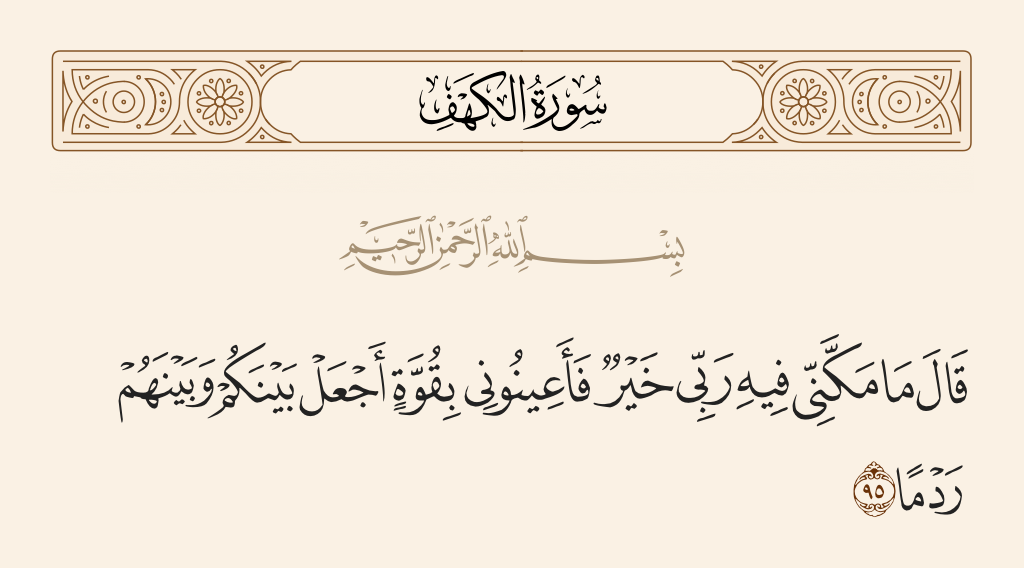 سُورَةُ الكَهۡفِ
بِسۡمِ ٱللَّهِ ٱلرَّحۡمَٰنِ ٱلرَّحِيمِ
قَالَ مَا مَكَّنِّي فِيهِ رَبِّي خَيۡرٞ فَأَعِينُونِي بِقُوَّةٍ أَجۡعَلۡ بَيۡنَكُمۡ وَبَيۡنَهُمۡ
رَدۡمًا ٩٥